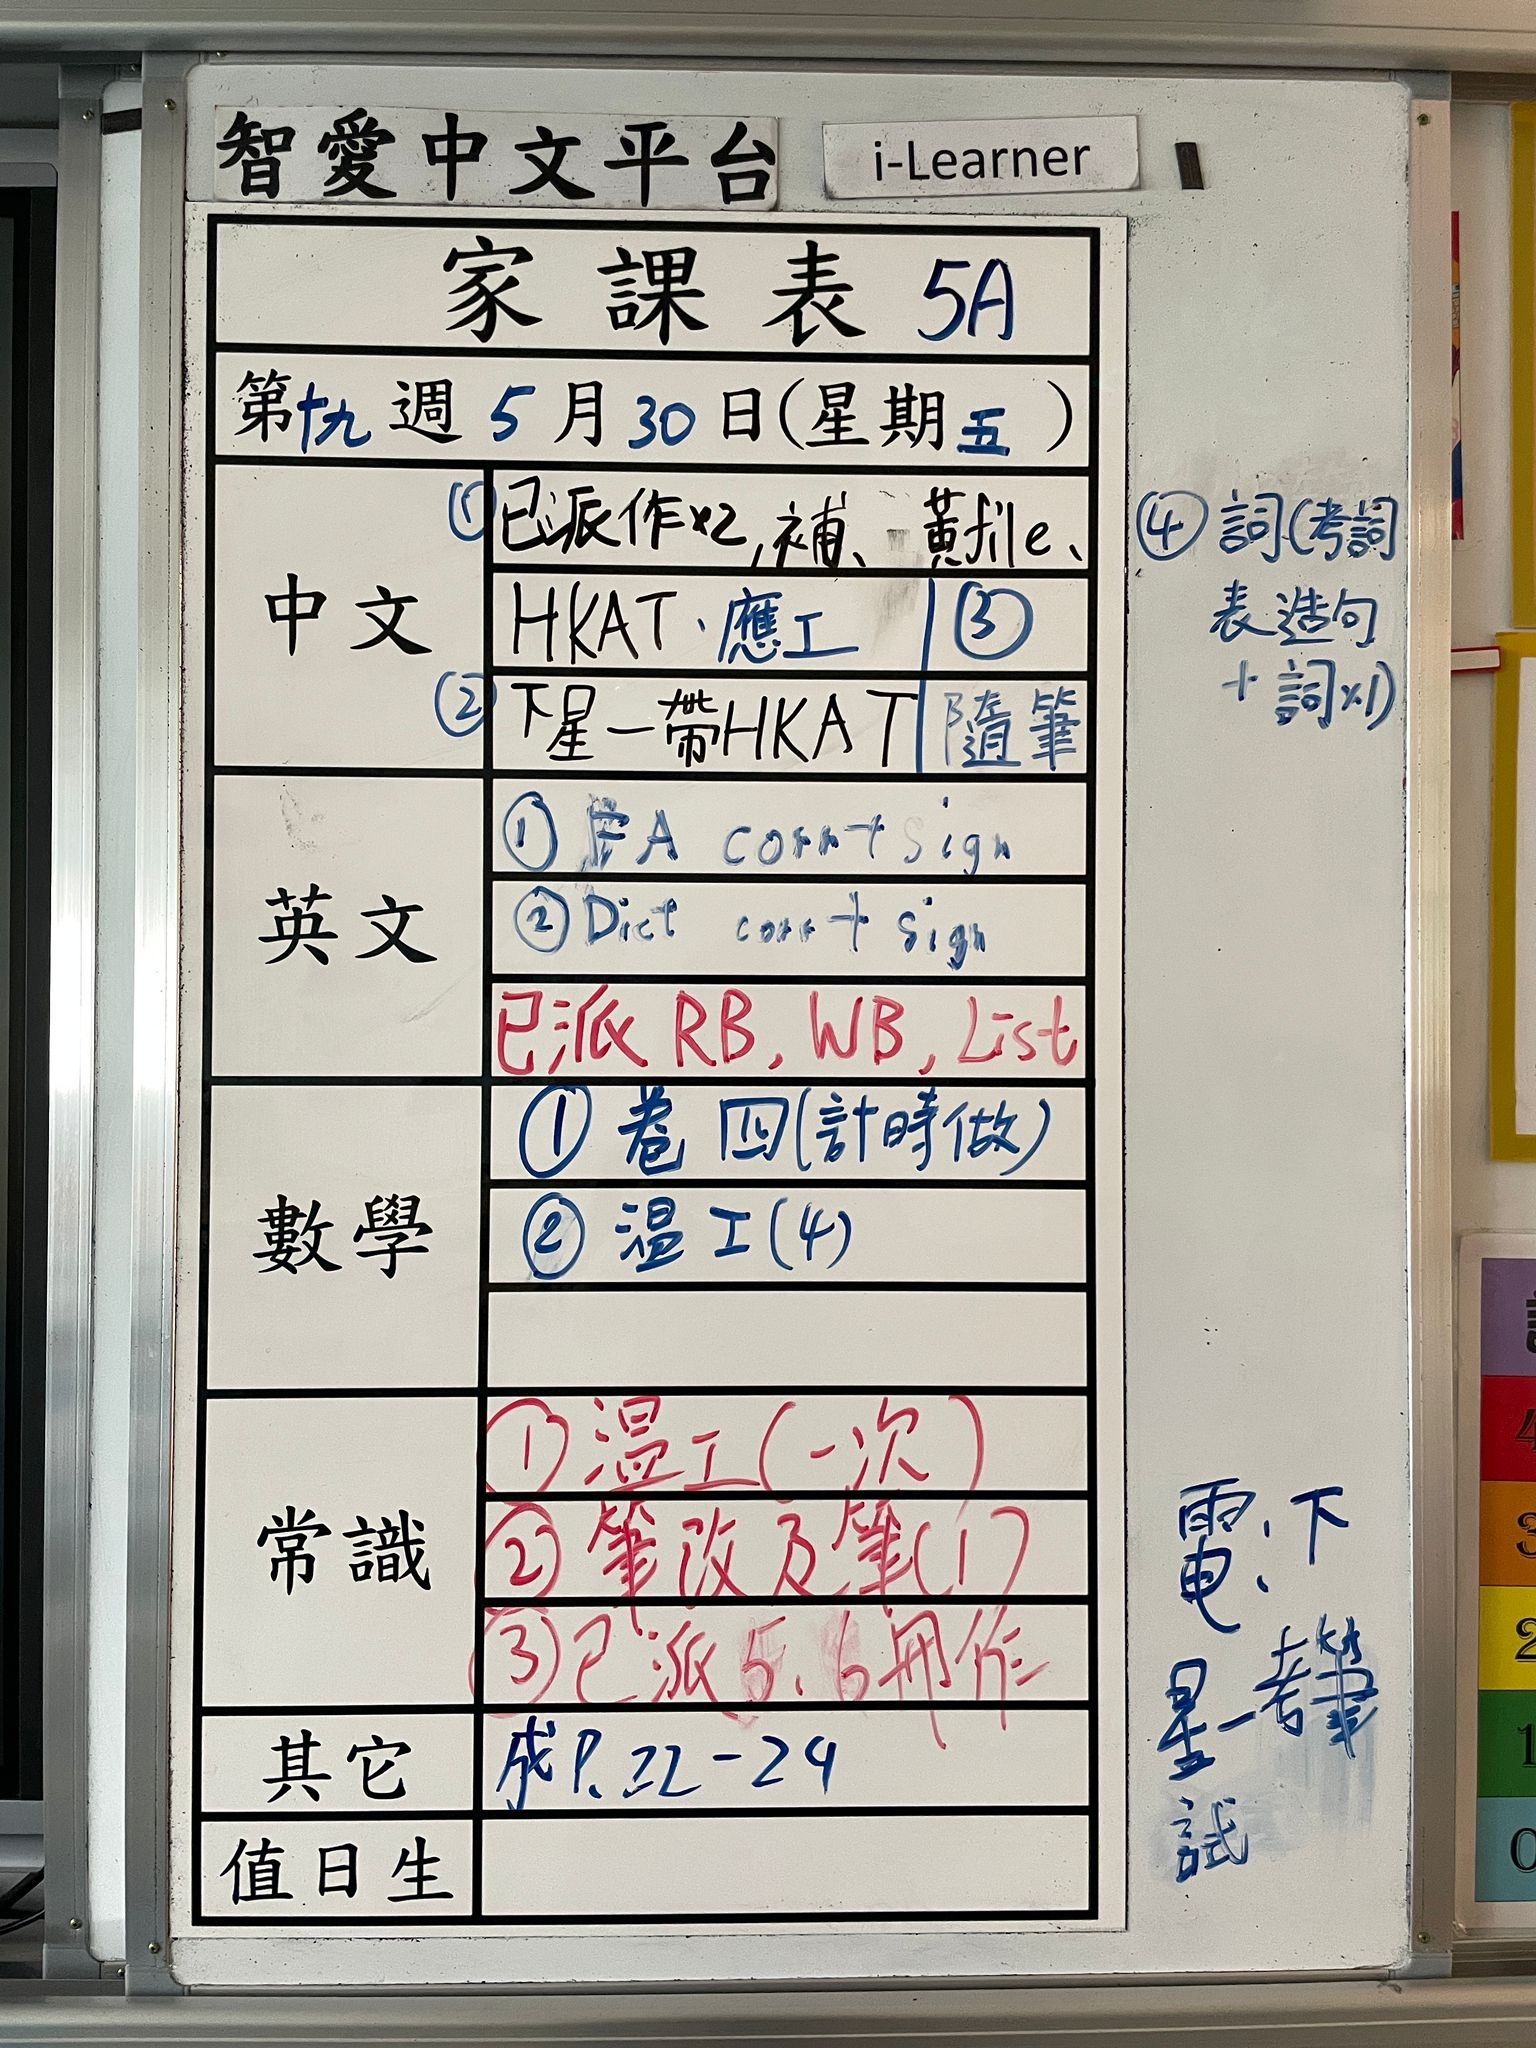 智愛中文平台 i-Learner
家課表 5A
第十九週 5月30日(星期五)
中文
① 已派作x2,補、黃file、
HKAT、應工
② 下星一帶HKAT
③
隨筆
④ 詞(考詞
表造句
+詞x1)
英文
① A corr + sign
② Dict corr + sign
已派 RB, WB, List
數學
① 卷四(計時做)
② 溫工(4)
常識
① 溫工(一次)
② 筆改及筆(1)
③ 已派5、6冊作
其它
成P.22-24
值日生
電:下
星一考筆
試
4
3
2
1
0